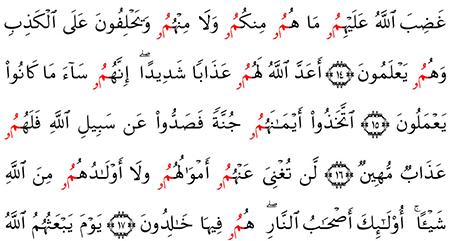 غَضِبَ ٱللَّهُ عَلَيْهِمُۥ مَا هُمُۥ مِنكُمُۥ وَلَا مِنْهُمُۥ وَيَحْلِفُونَ عَلَى ٱلْكَذِبِ
وَهُمُۥ يَعْلَمُونَ ۝١٤ أَعَدَّ ٱللَّهُ لَهُمُۥ عَذَابًا شَدِيدًا ۖ إِنَّهُمُۥ سَآءَ مَا كَانُوا۟
يَعْمَلُونَ ۝١٥ ٱتَّخَذُوٓا۟ أَيْمَـٰنَهُمُۥ جُنَّةً فَصَدُّوا۟ عَن سَبِيلِ ٱللَّهِ فَلَهُمُۥ
عَذَابٌ مُّهِينٌ ۝١٦ لَّن تُغْنِىَ عَنْهُمُۥ أَمْوَٰلُهُمُۥ وَلَا أَوْلَـٰدُهُمُۥ مِنَ ٱللَّهِ
شَيْـًٔا ۚ أُو۟لَـٰٓئِكَ أَصْحَـٰبُ ٱلنَّارِ ۖ هُمُۥ فِيهَا خَـٰلِدُونَ ۝١٧ يَوْمَ يَبْعَثُهُمُ ٱللَّهُ